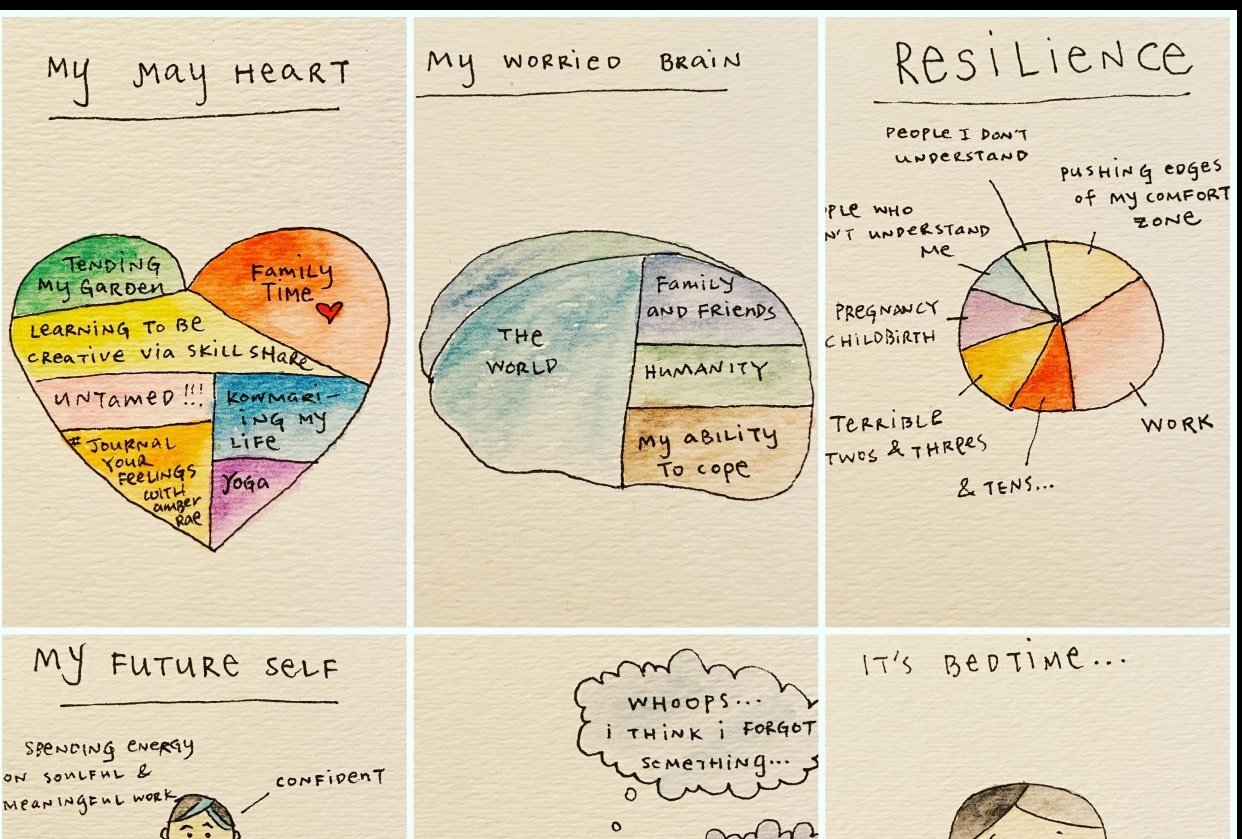 My MAY HEART
TENDING
MY GARDEN
FAMILY
TIME
LEARNING TO BE
CREATIVE VIA SKILL SHARE
UNTAMED !!!
KONMARI-
ING MY
LIFE
# JOURNAL
YOUR
FEELINGS
WITH
AMBER
RAE
YOGA
My WORRIED BRAIN
THE
WORLD
FAMILY
AND FRIENDS
HUMANITY
MY ABILITY
TO COPE
RESILIENCE
PEOPLE I DON'T
UNDERSTAND
PUSHING EDGES
OF MY COMFORT
ZONE
PLE WHO
N'T UNDERSTAND
ME
PREGNANCY
CHILDBIRTH
TERRIBLE
TWOS & THREES
& TENS...
WORK
My FUTURE SELF
SPENDING ENERGY
ON SOULFUL &
MEANINGFUL WORK
CONFIDENT
WHOOPS...
I THINK I FORGOT
SOMETHING...
IT'S BEDTIME...